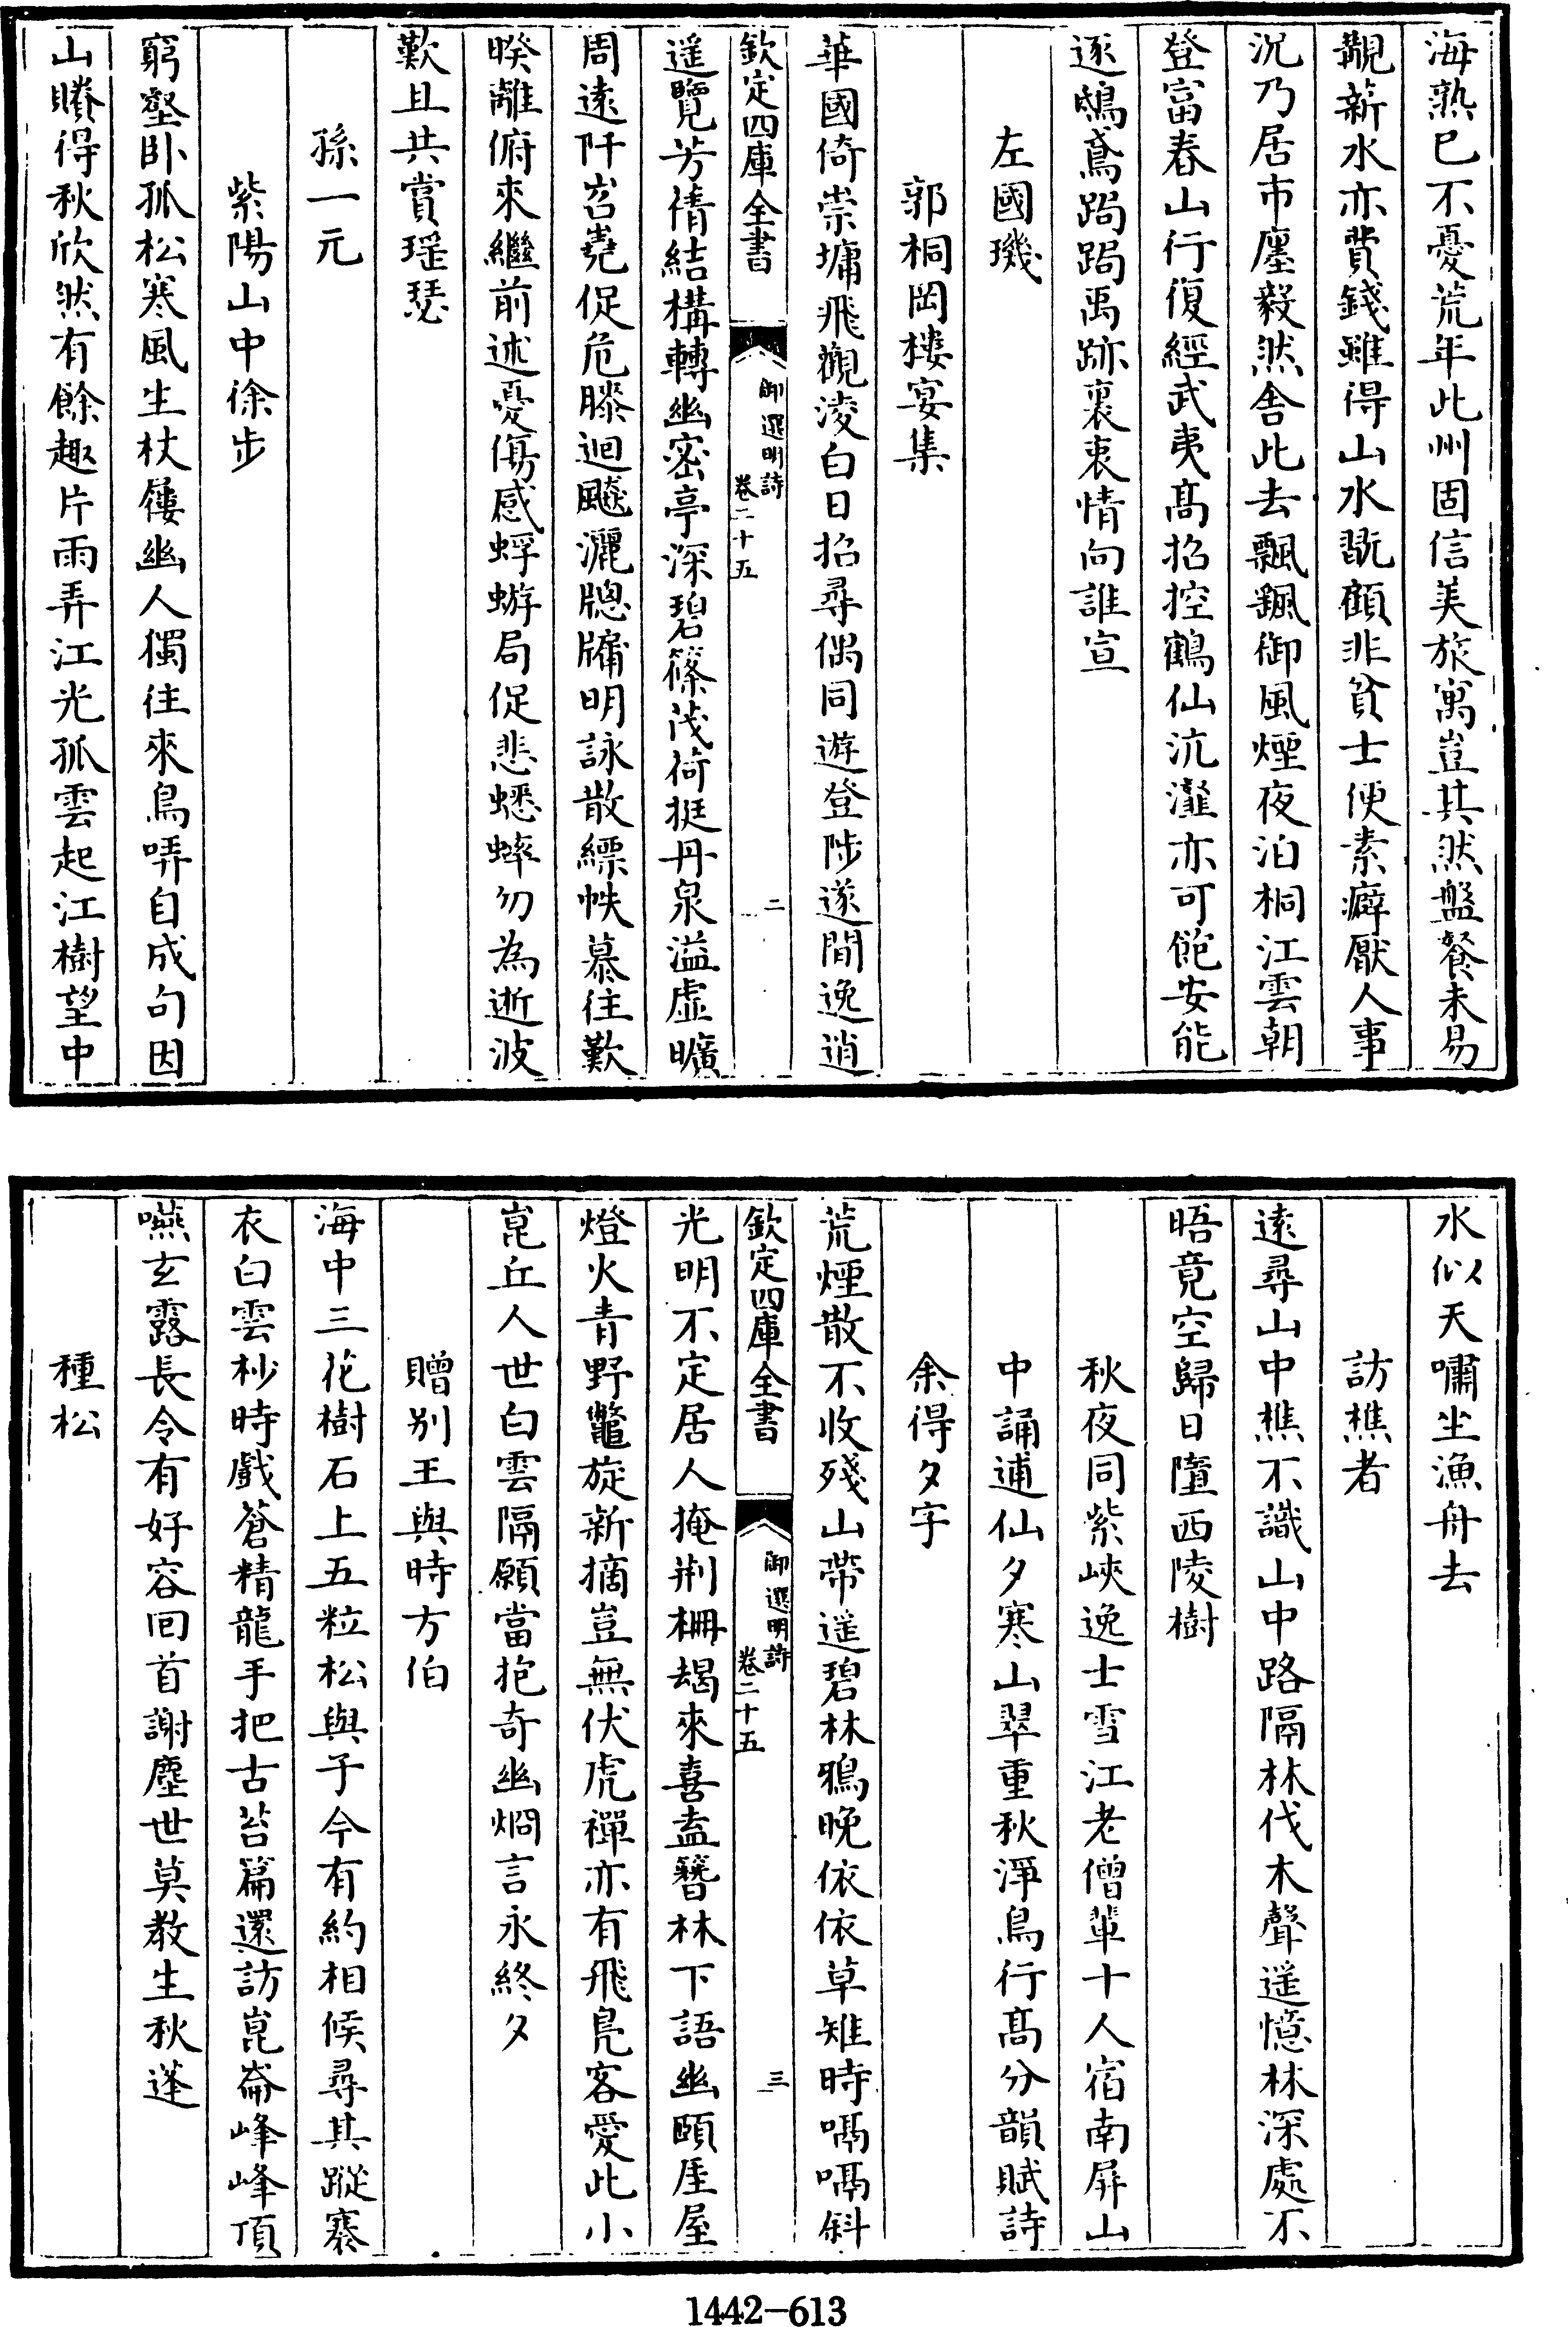 海熟已不憂荒年此州固信美旅寓豈其然盤餐未易
覯薪水亦費錢雖得山水翫顧非貧士便素癖厭人事
況乃居市廛毅然舍此去飄颻御風煙夜泊桐江雲朝
登富春山行復經武夷髙招控鶴仙沆瀣亦可飽安能
逐鴟鳶跼跼禹跡裏衷情向誰宣
左國璣
郭桐岡樓宴集
華國倚崇墉飛觀淩白日招尋偶同遊登陟遂間逸逍
欽定四庫全書
御選明詩
卷二十五
二
遥覽芳倩結構轉幽密亭深碧篠茂荷挺丹泉溢虛曠
周遠阡岧嶤促危膝迴飈灑牕牗明詠散縹帙慕往歎
暌離俯來繼前述憂傷感蜉蝣局促悲蟋蟀勿為逝波
歎且共賞瑶瑟
孫一元
紫陽山中徐步
窮壑卧孤松寒風生杖屨幽人獨往來鳥哢自成句因
山賸得秋欣然有餘趣片雨弄江光孤雲起江樹望中
水似天嘯坐漁舟去
訪樵者
逺尋山中樵不識山中路隔林伐木聲遥憶林深處不
晤竟空歸日墮西陵樹
秋夜同紫峽逸士雪江老僧輩十人宿南屏山
中誦逋仙夕寒山翠重秋淨鳥行髙分韻賦詩
余得夕字
荒煙散不收殘山帶遥碧林鴉晚依依草雉時嗝嗝斜
欽定四庫全書
御選明詩
卷二十五
三
光明不定居人掩荆柵朅來喜盍簪林下語幽頤厓屋
燈火青野鼈旋新摘豈無伏虎禪亦有飛鳬客愛此小
崑丘人世白雲隔願當抱奇幽烱言永終夕
贈别王與時方伯
海中三花樹石上五粒松與子今有約相候尋其蹤褰
衣白雲杪時戲蒼精龍手把古苔篇還訪崑崙峰峰頂
嚥玄露長令有好容回首謝塵世莫教生秋蓬
種松
1442-613